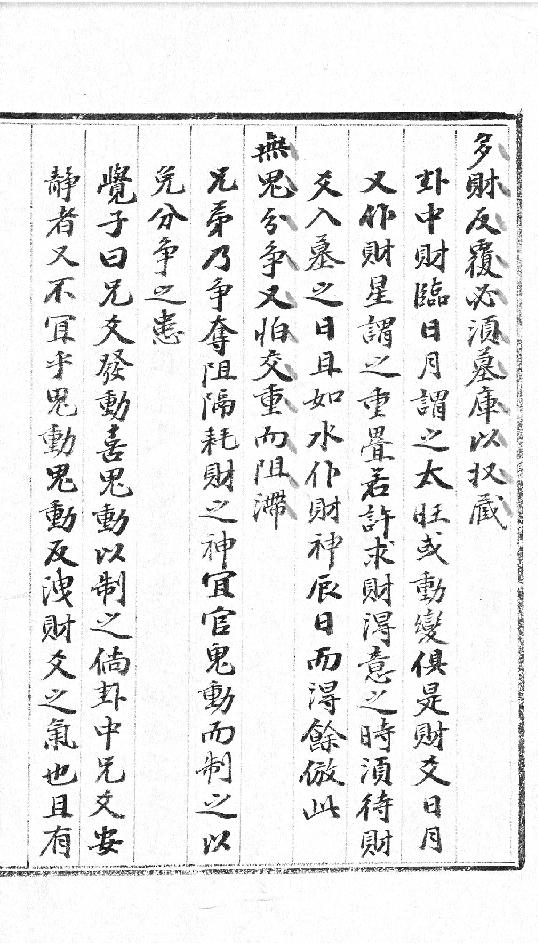 多財反覆必湏墓庫以収藏
卦中財臨日月謂之太旺或動變俱是財爻日月
又作財星謂之重疊若許求財淂意之時湏待財
爻入墓之日且如水作財神辰日而淂餘倣此
無鬼分争又怕交重而阻滯
兄弟乃争奪阻隔耗財之神冝官鬼動而制之以
免分争之患
覺子曰兄爻發動喜鬼動以制之倘卦中兄爻安
静者又不冝乎鬼動鬼動反洩財爻之氣也且有